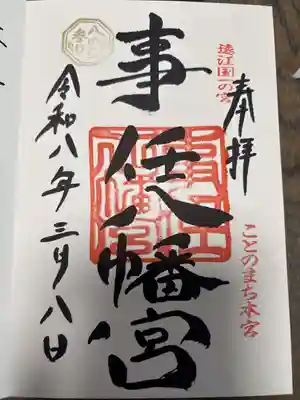 遠江国一の宮
奉拝
ことのまち本宮
事任八幡宮
令和八年三月八日